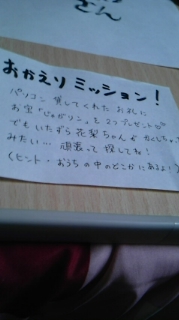 さん
おかえりミッション!
パソコン 貸してくれた お礼に
お宝「じゃがリコ」を 2つプレゼント
でも いたずら 花梨ちゃんが かくしちゃった
みたい… 頑張って 探してね!
(ヒント・おうちの中のどこかにあるよ!)